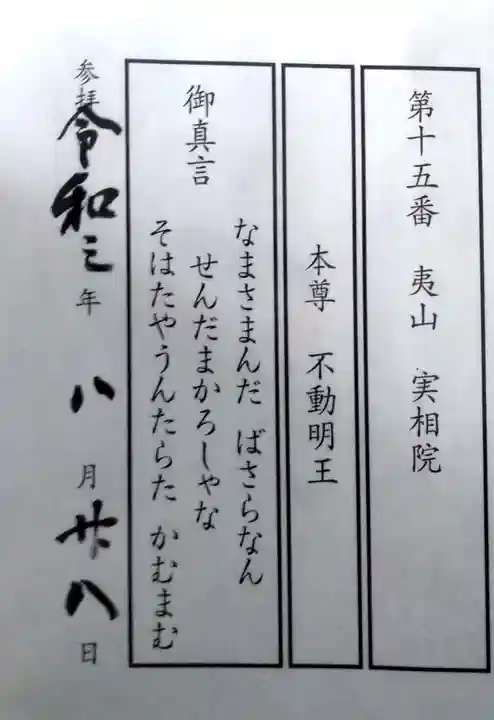 第十五番 夷山 実相院
本尊 不動明王
御真言
なまさまんだ ばさらなん
せんだまかろしゃな
そはたやうんたらた かむまむ
参拝 令和三年 八月 廿八日